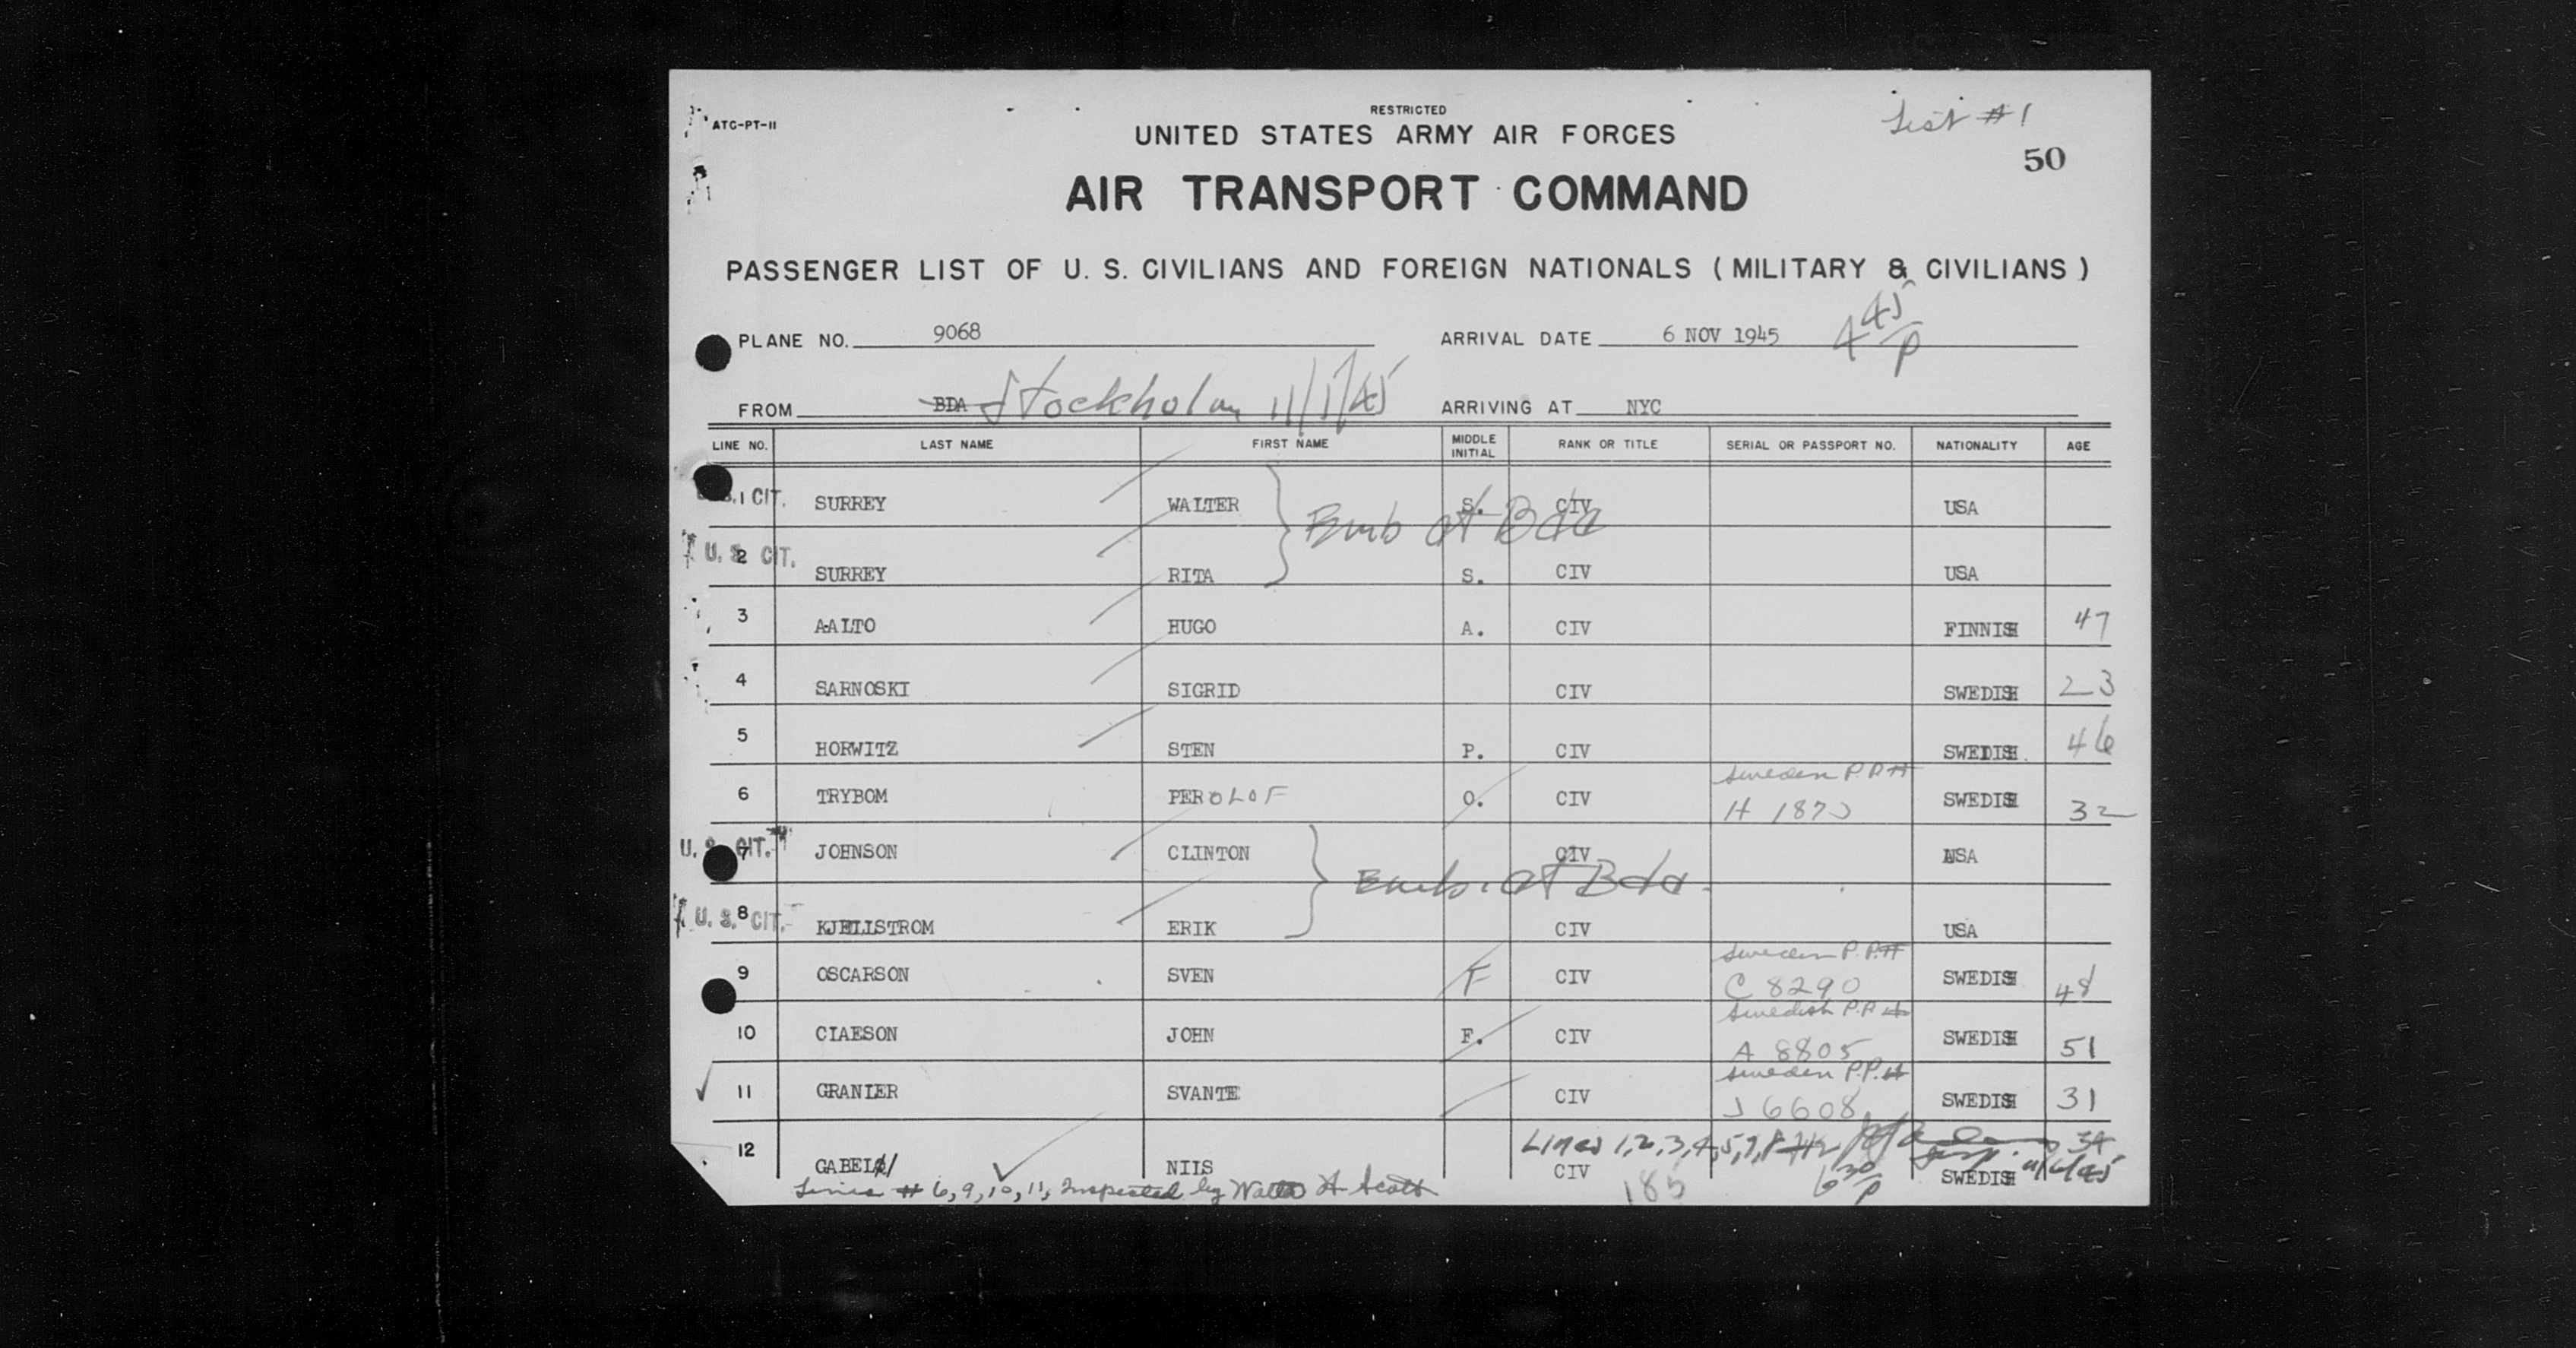 ATC-PT-II
RESTRICTED
List #1
UNITED STATES ARMY AIR FORCES
50
AIR TRANSPORT COMMAND
PASSENGER LIST OF U. S. CIVILIANS AND FOREIGN NATIONALS ( MILITARY & CIVILIANS )
PLANE NO. 9068 ARRIVAL DATE 6 NOV 1945 4 45/P
FROM BDA Stockholm 11/1/45 ARRIVING AT NYC
LINE NO. LAST NAME FIRST NAME MIDDLE INITIAL RANK OR TITLE SERIAL OR PASSPORT NO. NATIONALITY AGE
1 CIT. SURREY WALTER S. CIV USA
Emb at Bda
2 U. S. CIT. SURREY RITA S. CIV USA
3 AALTO HUGO A. CIV FINNISH 47
4 SARNOSKI SIGRID CIV SWEDISH 23
5 HORWITZ STEN P. CIV SWEDISH 46
Sweden P.P.#
6 TRYBOM PER OLOF O. CIV H 1870 SWEDISH 32
7 U. S. CIT. JOHNSON CLINTON CIV USA
Emb. at Bda.
8 U. S. CIT. KJELLSTROM ERIK CIV USA
Sweden P.P.#
9 OSCARSON SVEN F CIV C 8290 SWEDISH 48
Swedish P.P.#
10 CLAESON JOHN F. CIV A 8805 SWEDISH 51
Sweden P.P.#
11 GRANLER SVANTE CIV J 6608 SWEDISH 31
Lines 1,2,3,4,5,7,8 34
12 GABEL NILS CIV SWEDISH
Lines # 6, 9, 10, 11, Inspected by Walter A Scott 185 6 30/P 11/6/45